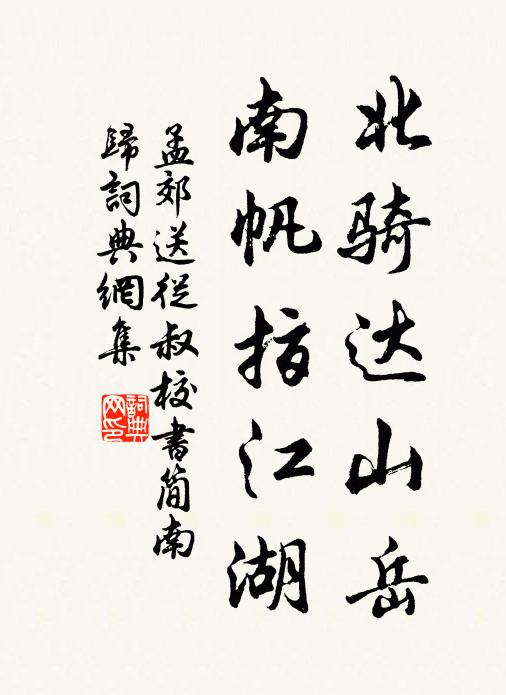 北骑达山岳
南帆指江湖
孟郊送從叔校書简南
歸詞典網集
詞典网印